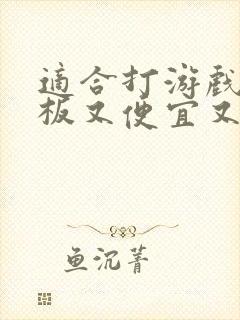 適合打游戲
板又便宜又
鱼沉菁